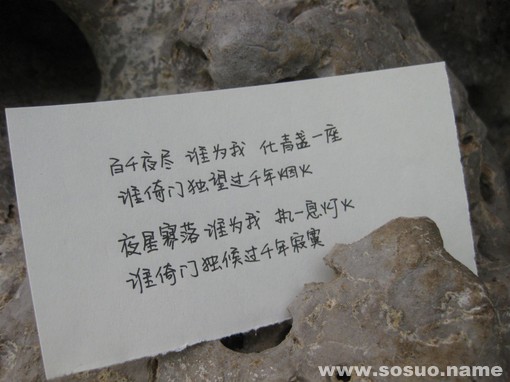 百千夜尽 谁为我 化青盏一座
谁倚门独望过千年烟火
夜星寥落谁为我 执一息灯火
谁倚门独候过千年寂寞
www.sosuo.name